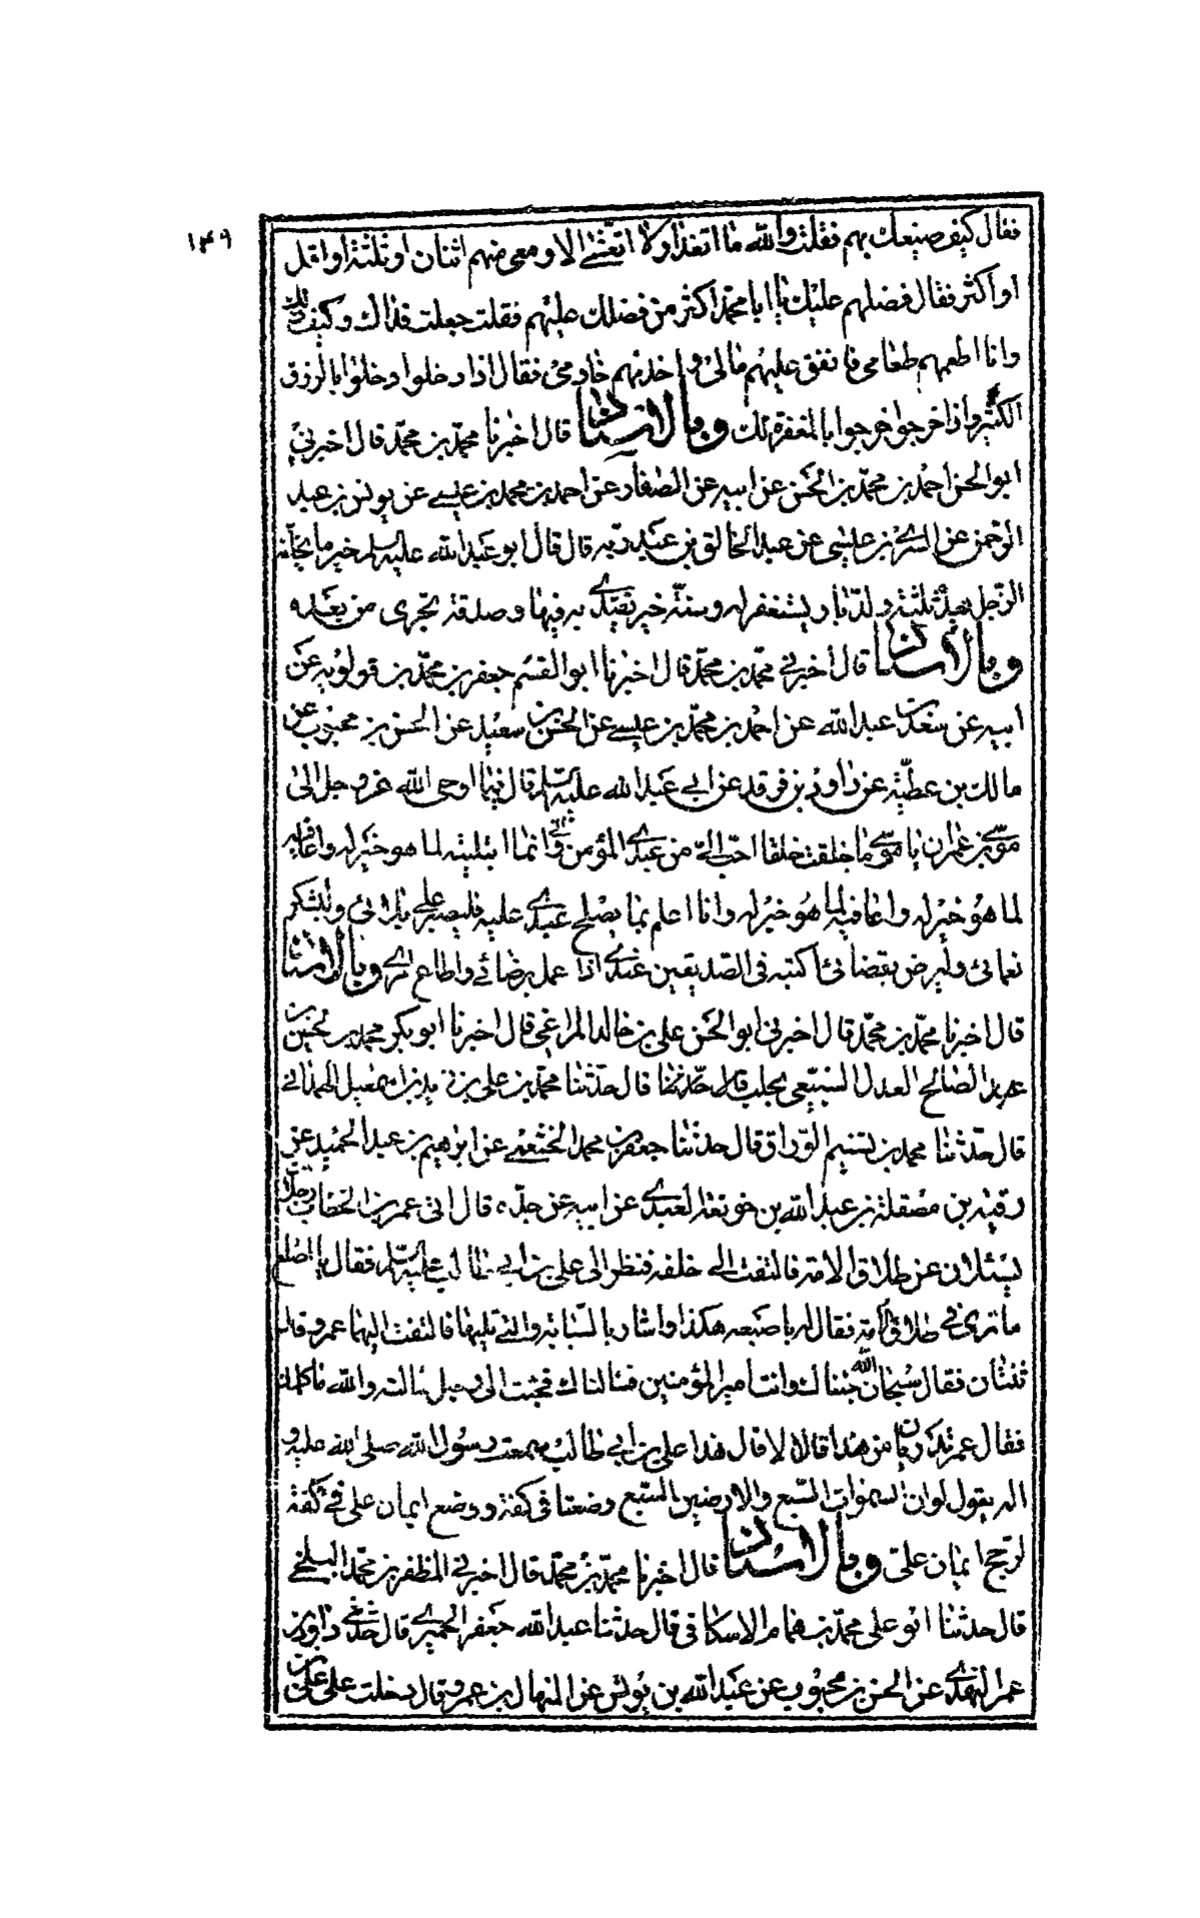 ١٣٩
فقال كيف صنيعك بهم فقلت والله ما اتغذا ولا اتعشى الا ومعى منهم اثنان او ثلثة او اقل
او اكثر فقال فضلهم عليك يا ابا محمد اكثر من فضلك عليهم فقلت جعلت فداك وكيف ذلك
وانا اطعمهم طعامى وانفق عليهم مالى واخدمهم خادمى فقال اذا دخلوا دخلوا بالرزق
الكثير واذا خرجوا خرجوا بالمغفرة لك وبالاسناد قال اخبرنا محمد بن محمد قال اخبرنى
ابوالحسن احمد بن محمد بن الحسن عن ابيه عن الصفار عن احمد بن محمد بن عيسى عن يونس بن عبد
الرحمن عن السرى بن عيسى عن عبد الخالق بن عبد ربه قال قال ابو عبد الله عليه السلم خير ما يخلفه
الرجل بعده ثلثة ولد بار يستغفر له وسنة خير يقتدى به فيها وصدقة تجرى من بعده
وبالاسناد قال اخبرنى محمد بن محمد قال اخبرنا ابو القسم جعفر بن محمد بن قولويه عن
ابيه عن سعد بن عبد الله عن احمد بن محمد بن عيسى عن الحسين بن سعيد عن الحسن بن محبوب عن
مالك بن عطية عن داود بن فرقد عن ابى عبد الله عليه السلم قال فيما اوحى الله عز وجل الى
موسى بن عمران يا موسى ما خلقت خلقا احب الى من عبدى المؤمن وانى انما ابتليته لما هو خير له واعافيه
لما هو خير له واعافيه لما هو خير له وانا اعلم بما يصلح عبدى عليه فليصبر على بلائى وليشكر
نعمائى وليرض بقضائى اكتبه فى الصديقين عندى اذا عمل برضائى واطاع امرى وبالاسناد
قال اخبرنا محمد بن محمد قال اخبرنى ابو الحسن على بن خالد المراغى قال اخبرنا ابو بكر محمد بن الحسين بن
الصالح العدل السبيعى بحلب قال حدثنا قال حدثنا محمد بن على بن اسمعيل الهمدانى
قال حدثنا محمد بن تسنيم الوراق قال حدثنا جعفر بن محمد الخثعمى عن ابرهيم بن عبد الحميد عن
رقية بن مصقلة بن عبد الله بن خوتعة العبدى عن ابيه عن جده قال اتى عمر بن الخطاب رجلان
يسئلان عن طلاق الامة فالتفت الى خلفه فنظر الى على بن ابى طالب عليه السلم فقال يا اصلع
ما ترى فى طلاق الامة فقال له باصبعه هكذا واشار بالسبابة والتى تليها فالتفت اليهما عمر وقال
ثنتان فقال سبحان الله جئناك وانت امير المؤمنين فسالناك فجئت الى رجل سالته والله ما كلمك
فقال عمر تدريان من هذا قالا لا قال هذا على بن ابى طالب سمعت رسول الله صلى الله عليه و
اله يقول لو ان السموات السبع والارضين السبع وضعتا فى كفة ووضع ايمان على فى كفة
لرجح ايمان على وبالاسناد قال اخبرنا محمد بن محمد قال اخبرنى المظفر بن محمد البلخى
قال حدثنا ابو على محمد بن همام الاسكافى قال حدثنا عبد الله جعفر الحميرى قال حدثنى داود بن
عمر النهدى عن الحسن بن محبوب عن عبد الله بن يونس عن المنهال بن عمرو قال دخلت على على بن